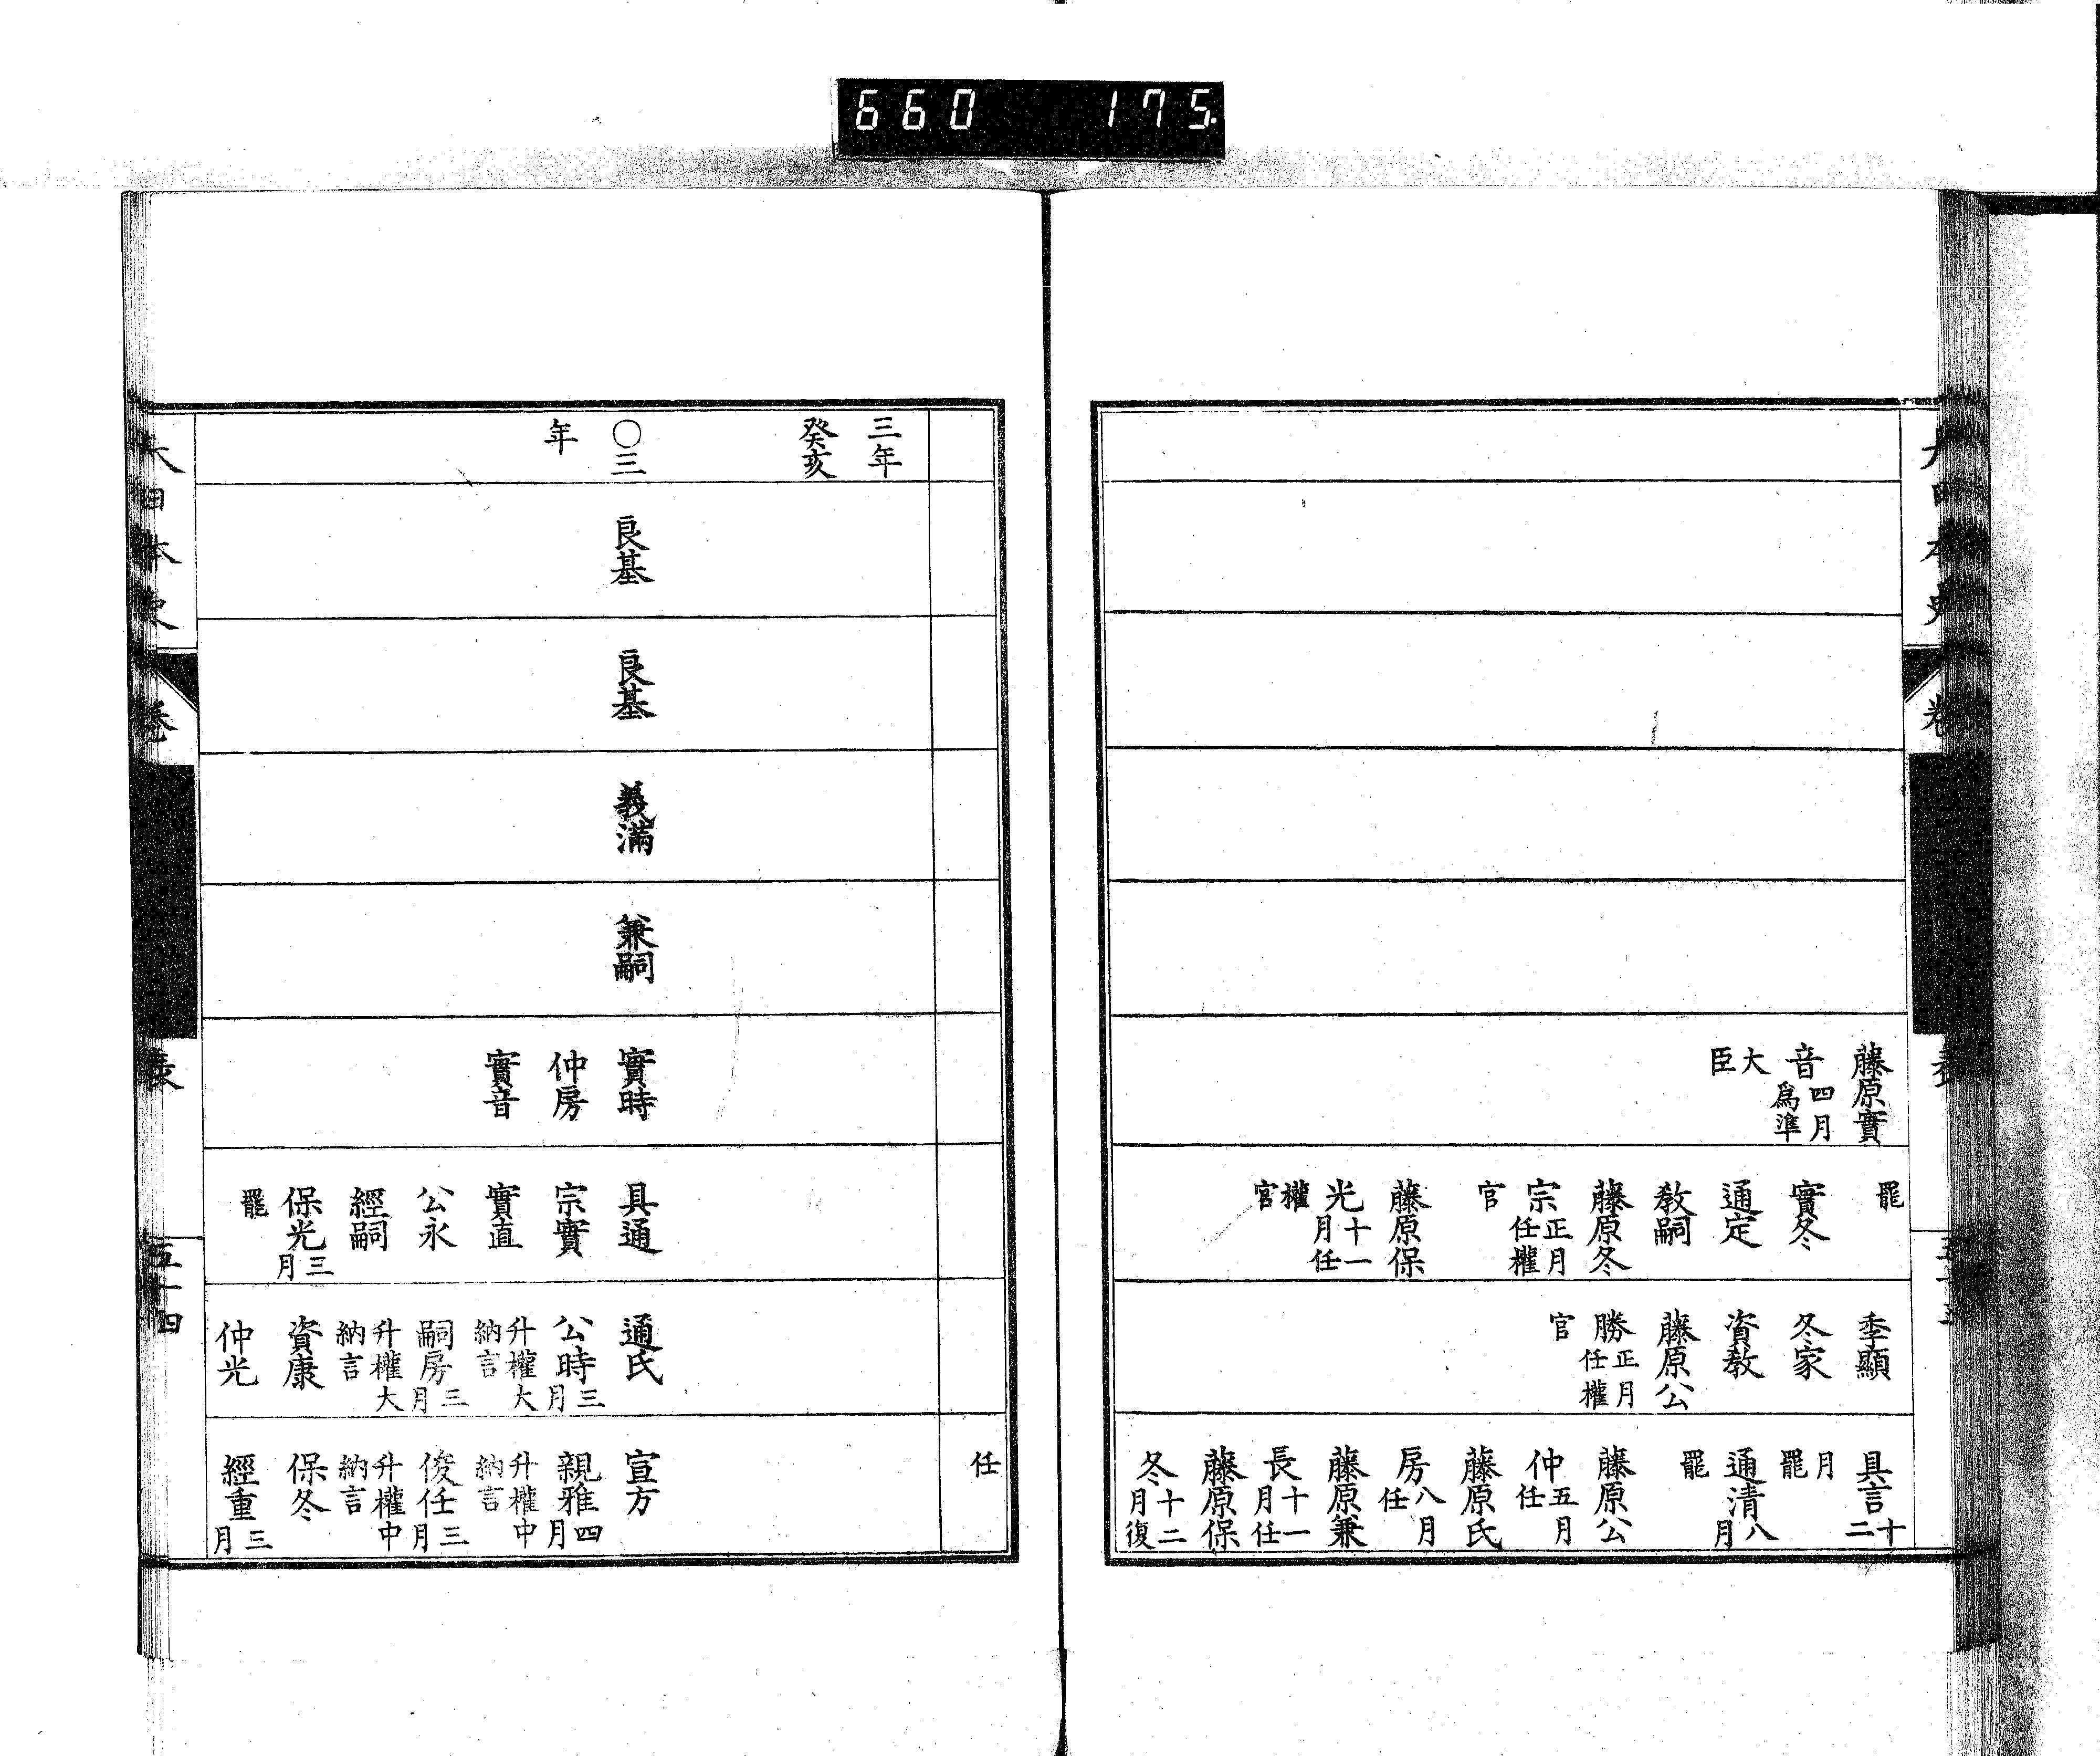 660 175
藤原實
音 四月爲準
大臣
罷
實冬
通定
教嗣
藤原冬
宗 正月任權
官
藤原保
光 十一月任
權官
季顯
冬家
資教
藤原公
勝 正月任權
官
具言 十二
月罷
通清 八月
罷
藤原公
仲 五月任
藤原氏
房 八月任
藤原兼
長 十一月任
藤原保
冬 十二月復
任
三年
癸亥
〇三
年
良基
良基
義滿
兼嗣
實時
仲房
實音
具通
宗實
實直
公永
經嗣
保光 三月
罷
通氏
公時 三月
升權大納言
嗣房 三月
升權大納言
資康
仲光
宣方
親雅 四月
升權中納言
俊任 三月
升權中納言
保冬
經重 三月
大日本史
卷
表
五十四